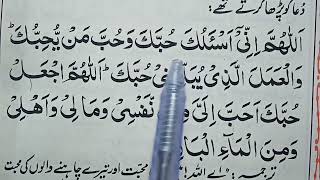 دُعا کو پڑھا کرتے تھے:
اَللّٰهُمَّ اِنِّیْ اَسْئَلُكَ حُبَّكَ وَحُبَّ مَنْ یُّحِبُّكَ
وَالْعَمَلَ الَّذِیْ حُبَّكَ اَللّٰهُمَّ اجْعَلْ
حُبَّكَ اَحَبَّ اِلَیَّ نَفْسِیْ وَمَالِیْ وَاَهْلِیْ
وَمِنَ الْمَآءِ
ترجمہ: اے اللہ! محبت اور تیرے چاہنے والوں کی محبت